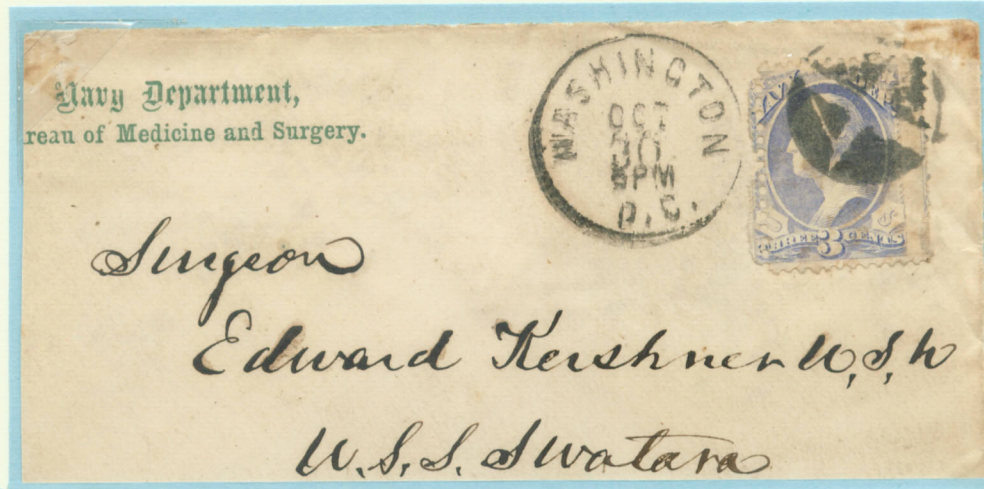 Navy Department,
reau of Medicine and Surgery.
WASHINGTON
OCT
30
5PM
D.C.
THREE 3 CENTS
U S
Surgeon
Edward Kershner U.S.N
U.S.S. Swatara